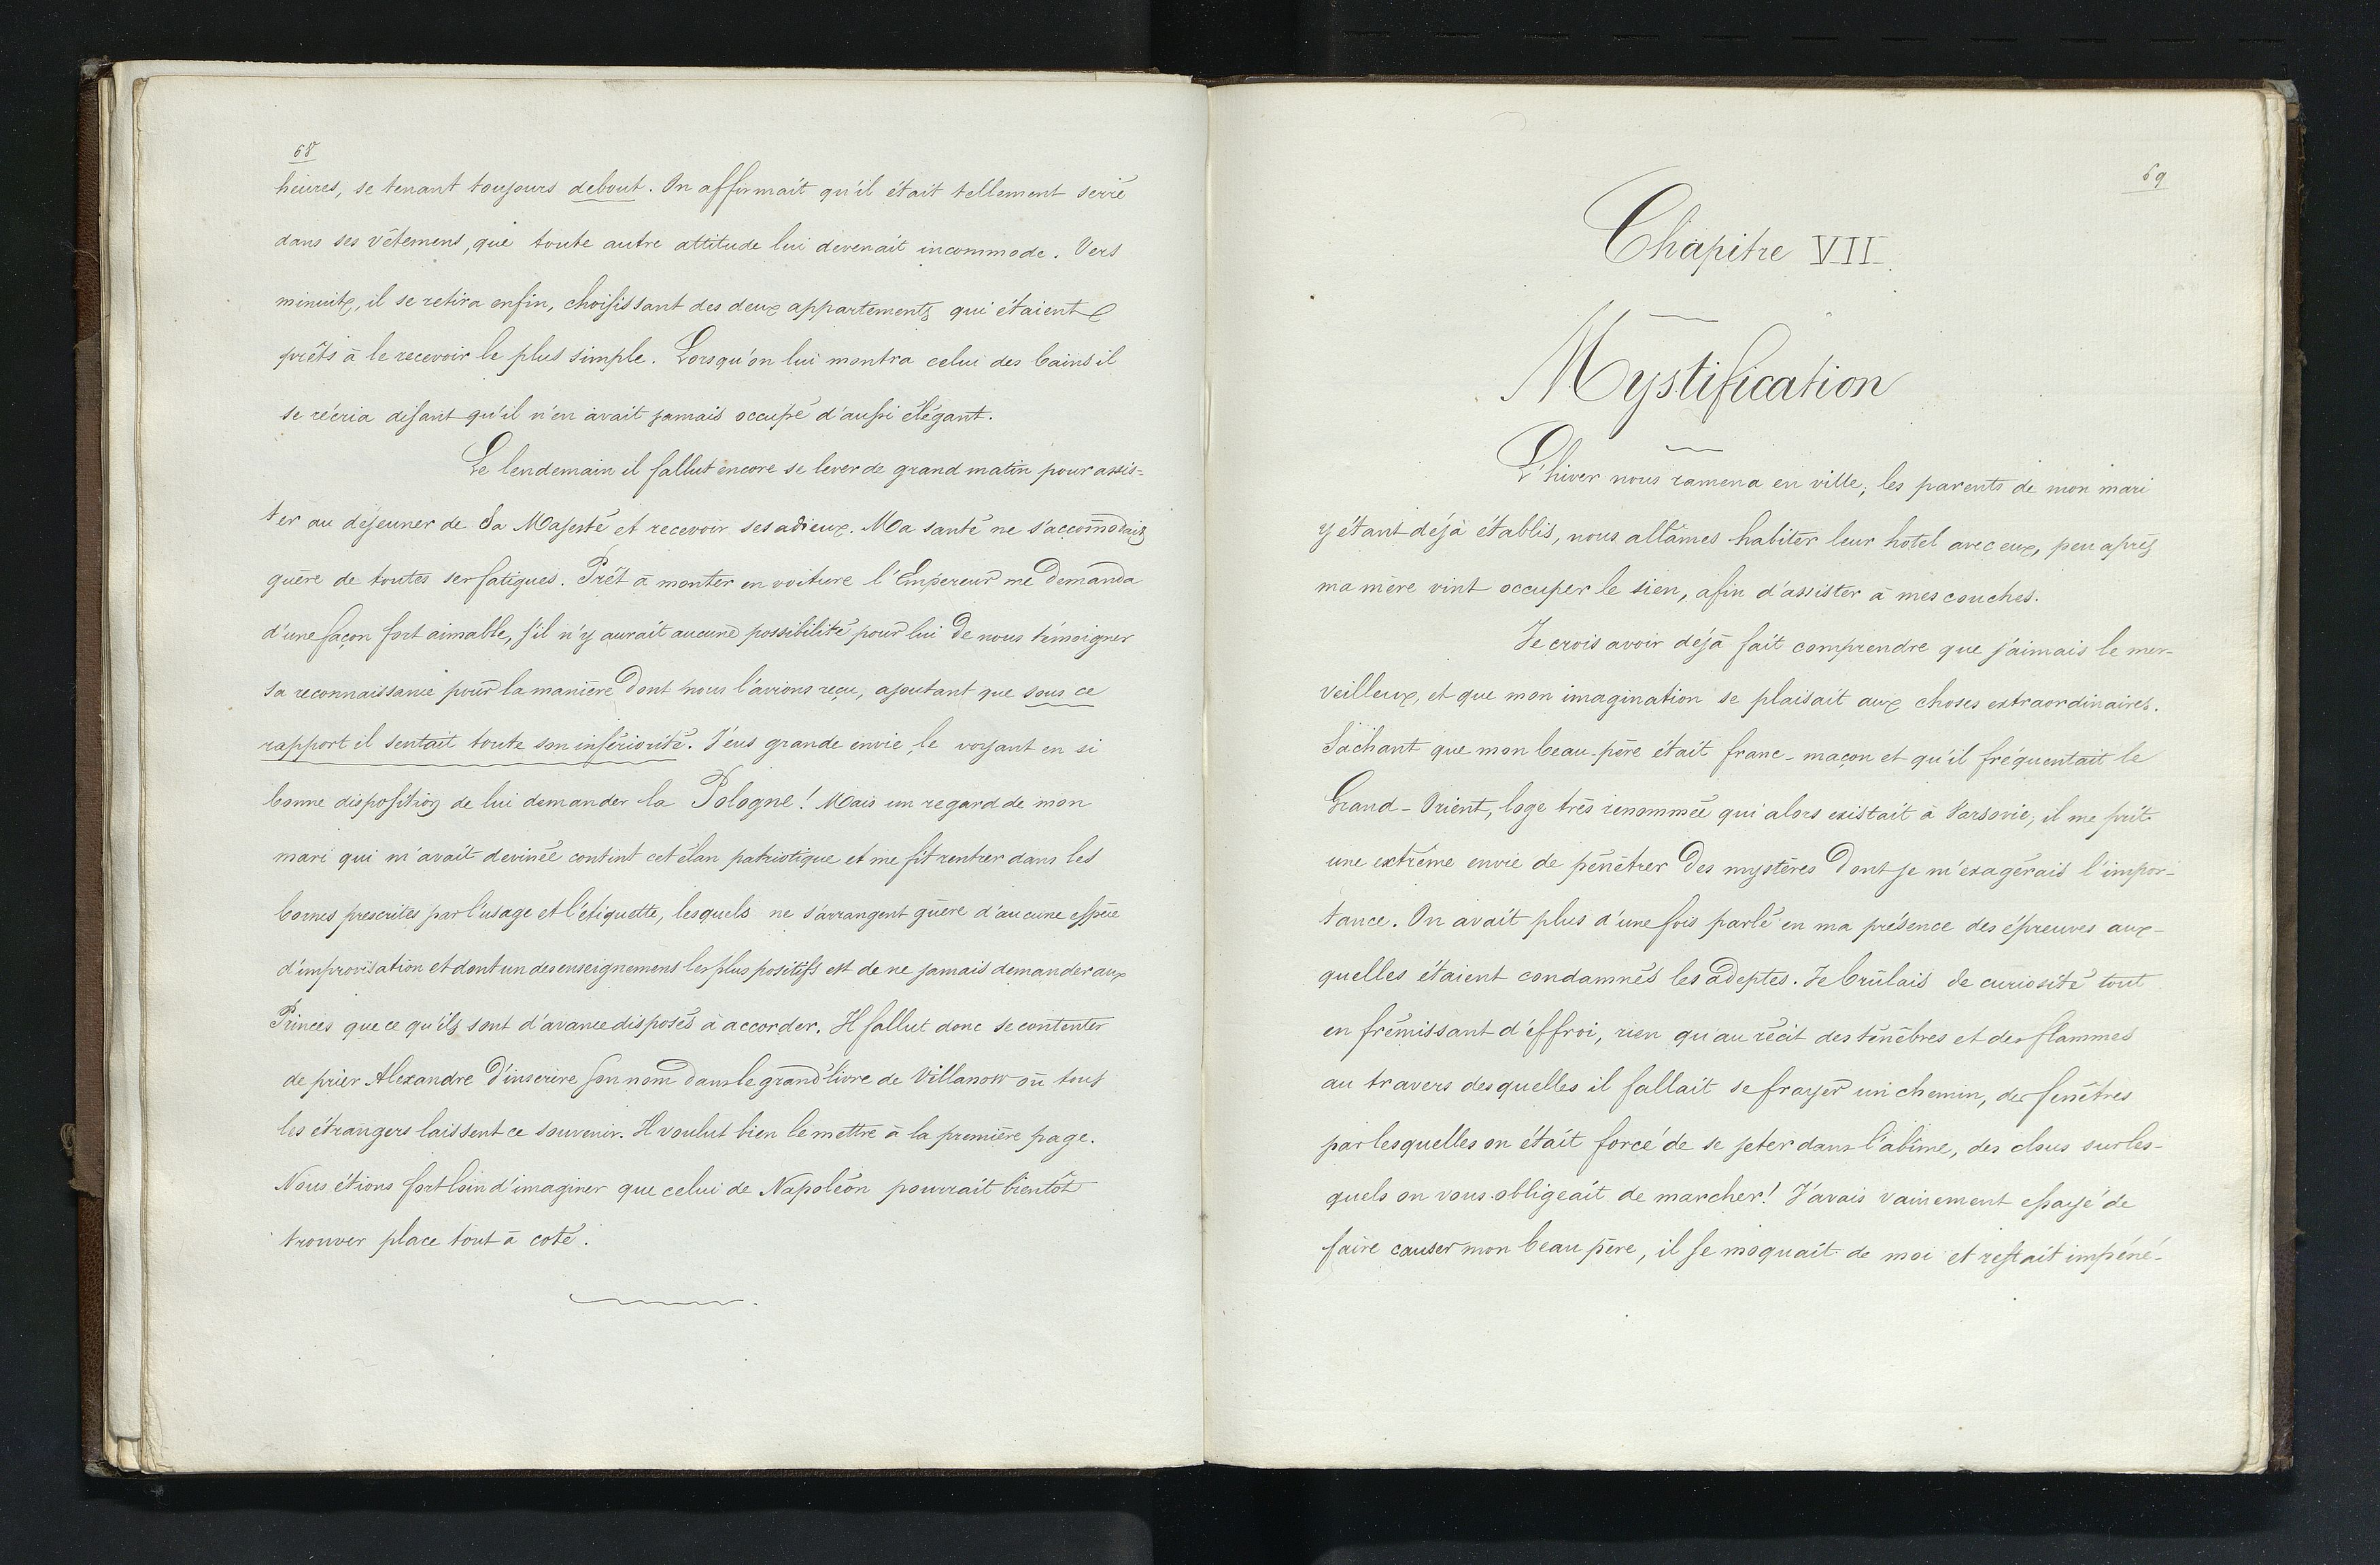 68
heures, se tenant toujours debout. On affirmait qu'il était tellement serré
dans ses vêtemens, que toute autre attitude lui devenait incommode. Vers
minuit, il se retira enfin, choisissant des deux appartements qui étaient
prêts à le recevoir le plus simple. Lorsqu'on lui montra celui des bains il
se récria disant qu'il n'en avait jamais occupé d'aussi élégant.
Le lendemain il fallut encore se lever de grand matin pour assis-
ter au déjeuner de Sa Majesté et recevoir ses adieux. Ma santé ne s'accommodait
guère de toutes ses fatigues. Prêt à monter en voiture l'Empereur me demanda
d'une façon fort aimable, s'il n'y aurait aucune possibilité pour lui de nous témoigner
sa reconnaissance pour la manière dont nous l'avions reçu, ajoutant que sous ce
rapport il sentait toute son infériorité. J'eus grande envie, le voyant en si
bonne disposition de lui demander la Pologne! Mais un regard de mon
mari qui m'avait devinée contint cet élan patriotique et me fit rentrer dans les
bornes prescrites par l'usage et l'étiquette, lesquels ne s'arrangent guère d'aucune espèce
d'improvisation et dont un des enseignemens les plus positifs est de ne jamais demander aux
Princes que ce qu'ils sont d'avance disposés à accorder. Il fallut donc se contenter
de prier Alexandre d'inscrire son nom dans le grand livre de Villanow où tous
les étrangers laissent ce souvenir. Il voulut bien le mettre à la première page.
Nous étions fort loin d'imaginer que celui de Napoléon pourrait bientôt
trouver place tout à coté.
69
Chapitre VII.
Mystification
L'hiver nous ramena en ville, les parents de mon mari
y étant déjà établis, nous allâmes habiter leur hotel avec eux, peu après
ma mère vint occuper le sien, afin d'assister à mes couches.
Je crois avoir déjà fait comprendre que j'aimais le mer-
veilleux, et que mon imagination se plaisait aux choses extraordinaires.
Sachant que mon beau-père était franc-maçon et qu'il fréquentait le
Grand-Orient, loge très renommée qui alors existait à Varsovie, il me prit
une extrême envie de pénétrer des mystères dont je m'exagérais l'impor-
tance. On avait plus d'une fois parlé en ma présence des épreuves aux-
quelles étaient condamnés les adeptes. Je brûlais de curiosité tout
en frémissant d'effroi, rien qu'au récit des ténèbres et des flammes
au travers desquelles il fallait se frayer un chemin, des fenêtres
par lesquelles on était forcé de se jeter dans l'abîme, des clous sur les-
quels on vous obligeait de marcher! J'avais vainement essayé de
faire causer mon beau père, il se moquait de moi et restait impéné-